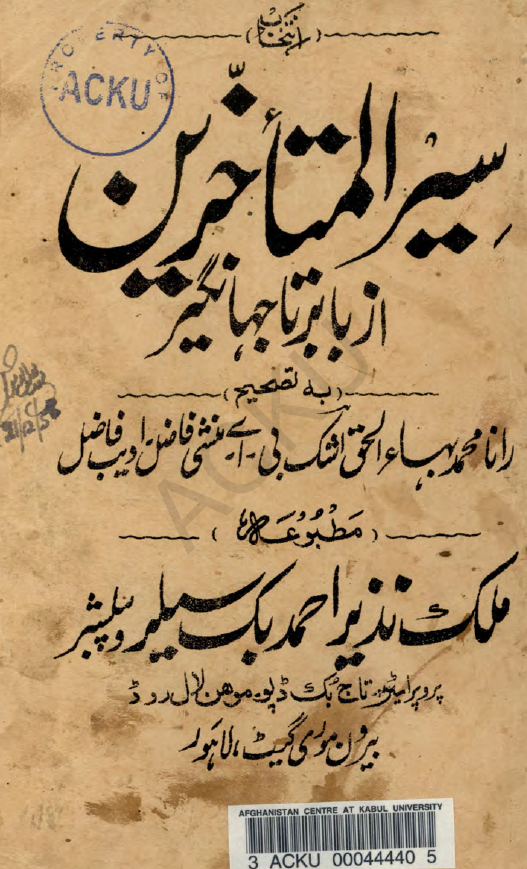 (انتخاب)
PROPERTY OF
ACKU
سِیَرالمتأخّرین
از بابر تا جہانگیر
(بہ تصحیح)
رانا محمد بہاء الحق اشک بی-اے-منشی فاضل-ادیب فاضل
(مَطْبُوْعَہ)
ملک نذیر احمد بک سیلر و پبلشر
پروپرائیٹر تاج بک ڈپو-موہن لال روڈ
بیرون موری گیٹ، لاہور
ACKU
AFGHANISTAN CENTRE AT KABUL UNIVERSITY
3 ACKU 00044440 5